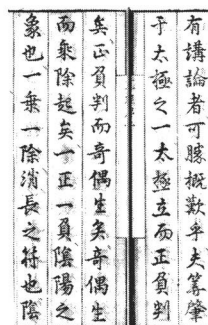 有講論者可勝概歎乎夫筭肇
于太極之一太極立而正負判
矣正負判而奇偶生矣奇偶生
而乘除起矣一正一負陰陽之
象也一乘一除消長之符也陰